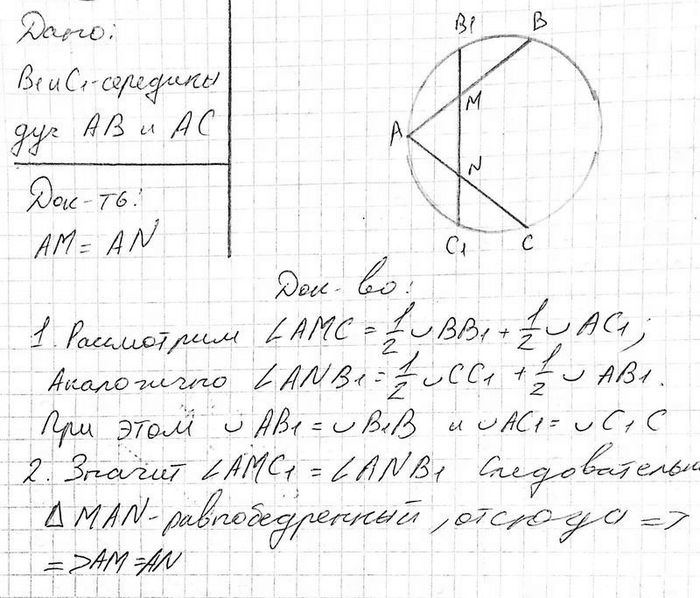 Дано:
B1 и C1-середины
дуг AB и AC
Док-ть:
AM = AN
B1
B
M
A
N
C1
C
Док-во:
1. Рассмотрим ∠AMC = 1/2 ∪BB1 + 1/2 ∪AC1;
Аналогично ∠ANB1 = 1/2 ∪CC1 + 1/2 ∪AB1.
При этом ∪AB1 = ∪B1B и ∪AC1 = ∪C1C
2. Значит ∠AMC1 = ∠ANB1 Следовательн
Δ MAN-равнобедренный, отсюда =>
=> AM = AN